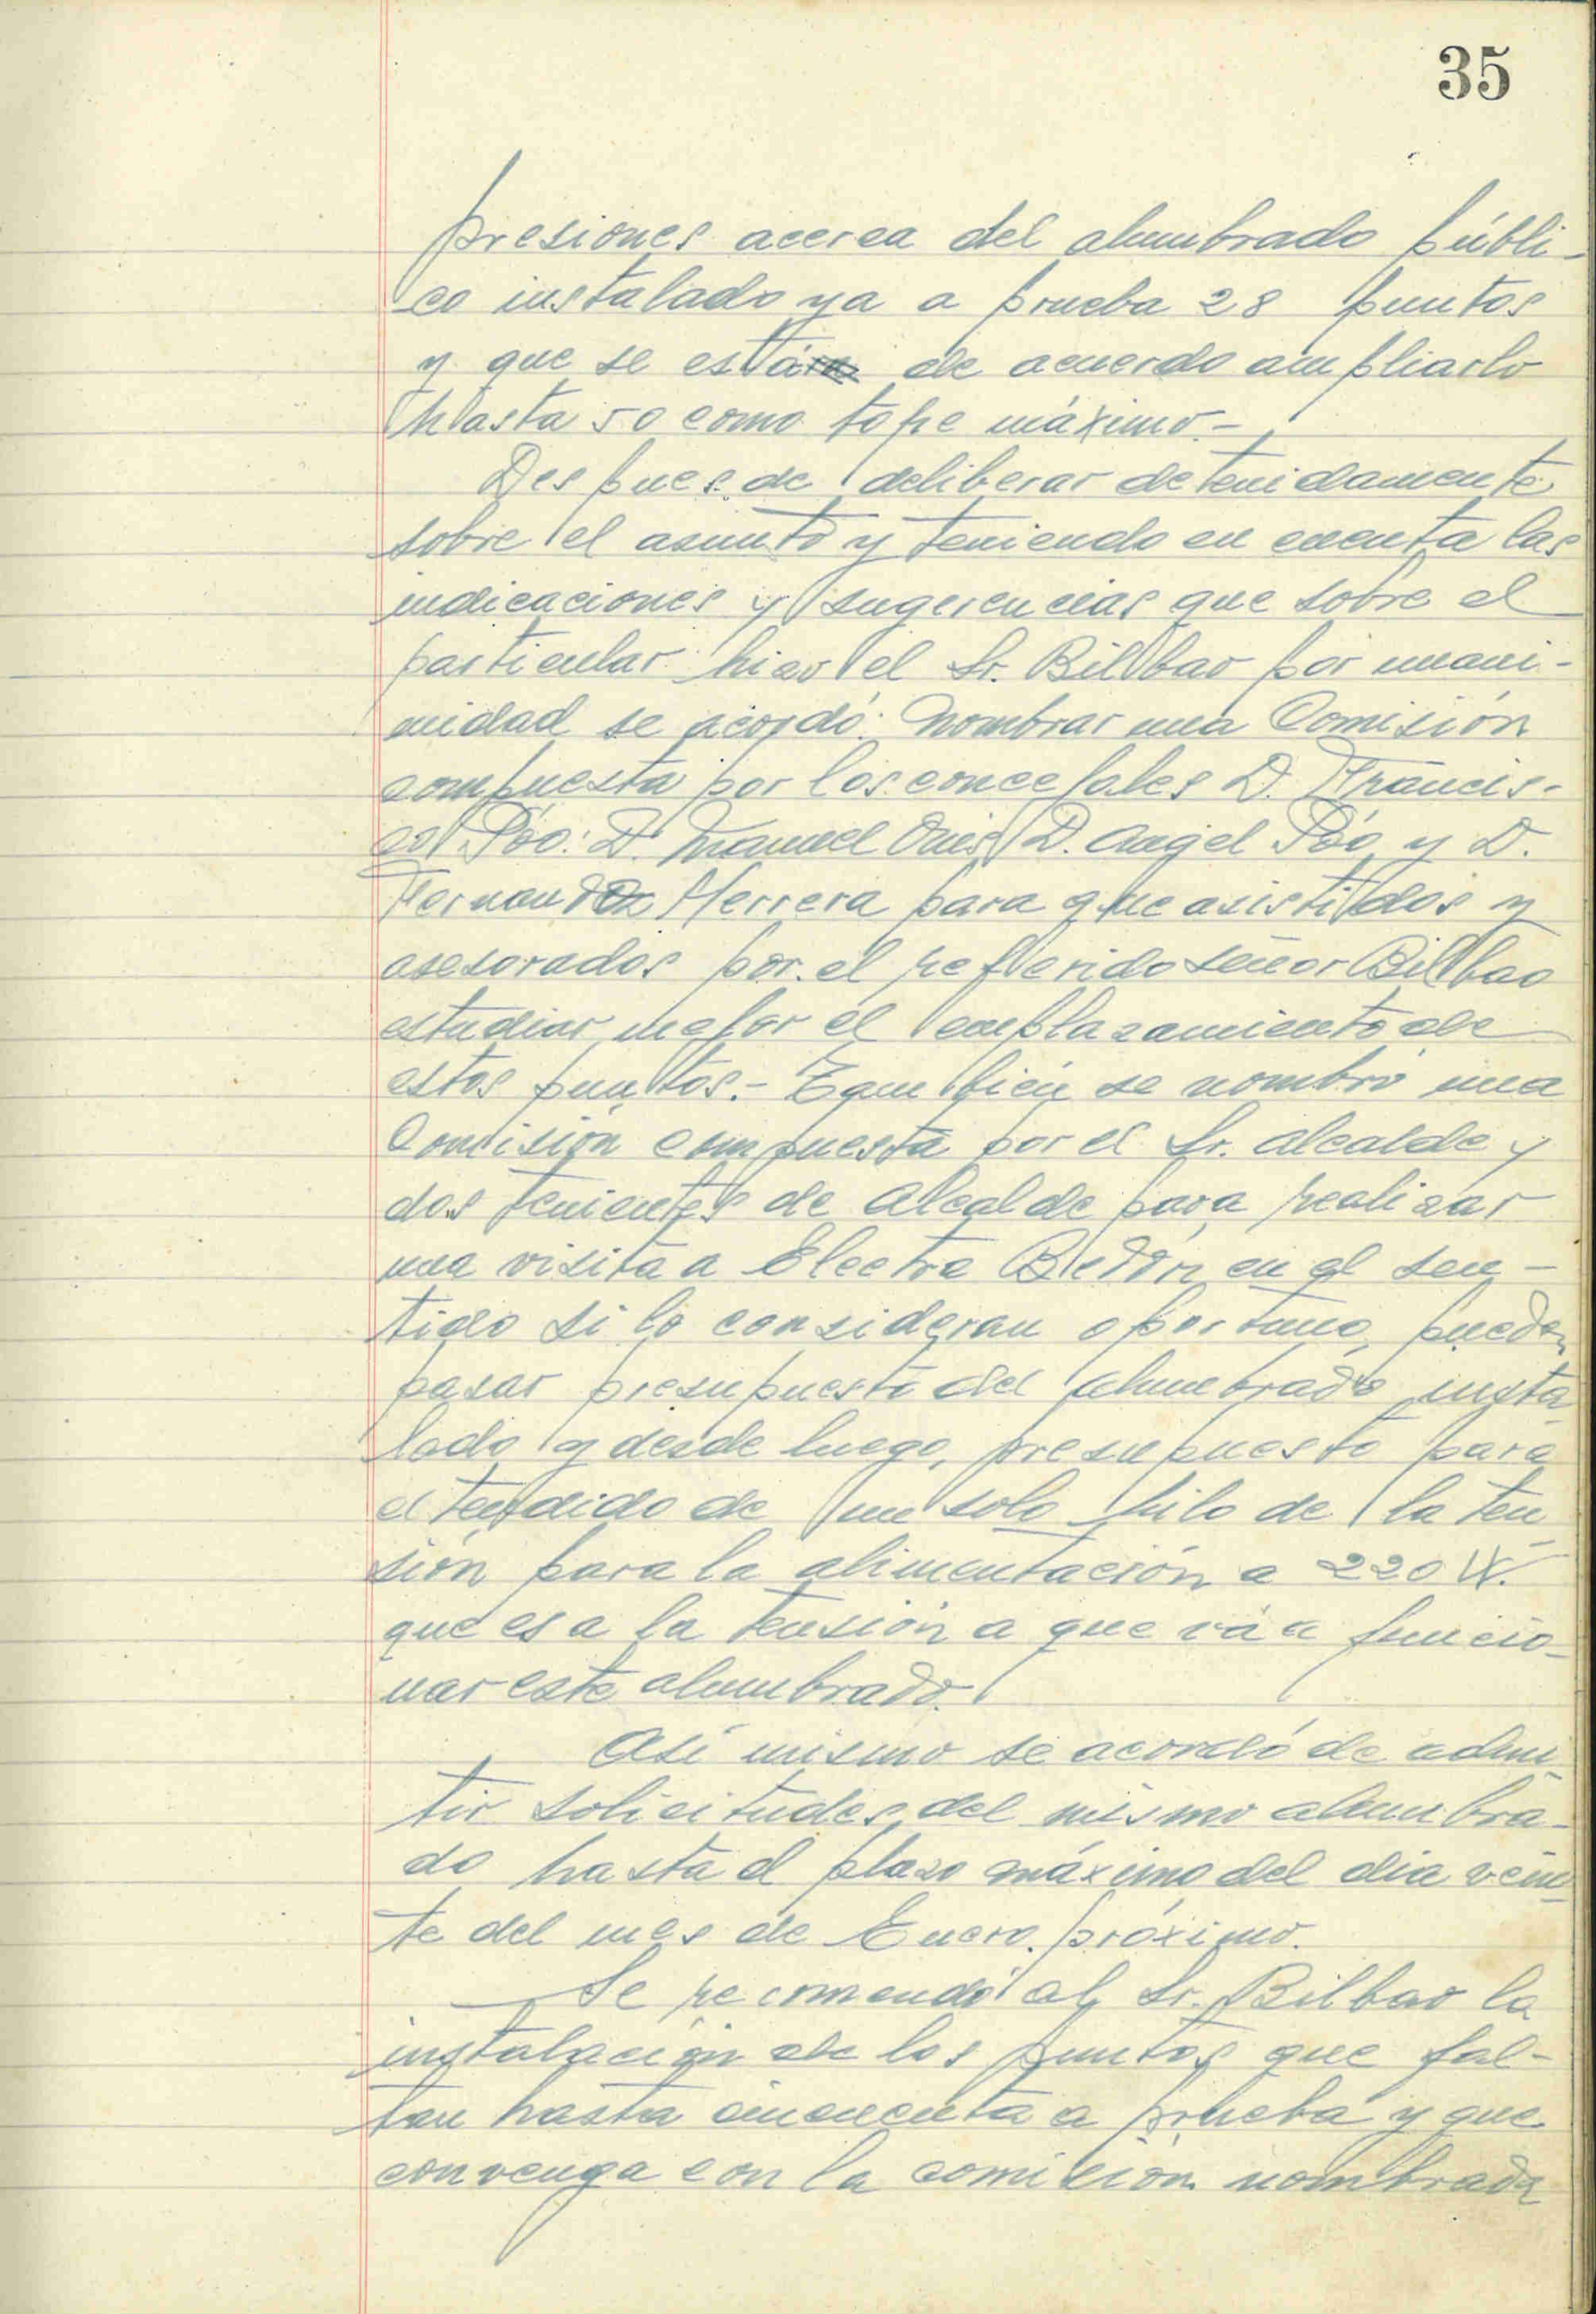 35
presiones acerca del alumbrado públi-
co instalado ya a prueba 28 puntos
y que se está de acuerdo ampliarlo
hasta 50 como tope máximo.-
Despues de deliberar detenidamente
sobre el asunto y teniendo en cuenta las
indicaciones y sugerencias que sobre el
particular hizo el Sr. Bilbao por unani-
midad se acordó: Nombrar una Comisión
compuesta por los concejales D. Francis-
co Póo: D. Manuel Onis D. Angel Póo y D.
Fernando Herrera para que asistidos y
asesorados por el referido señor Bilbao
estudiar mejor el emplazamiento de
estos puntos.- Tambien se nombró una
Comisión compuesta por el Sr. Alcalde y
dos tenientes de Alcalde para realizar
una visita a Electra Bedón en el sen-
tido si lo consideran oportuno, pueden
pasar presupuesto del alumbrado insta-
lado y desde luego, presupuesto para
el tendido de un solo hilo de la ten-
sión para la alimentación a 220 W.
que es a la tensión a que vá a funcio-
nar este alumbrado.
Así mismo se acordó de admi-
tir solicitudes del mismo alumbra-
do hasta el plazo máximo del dia vein-
te del mes de Enero próximo.
Se recomendó al Sr. Bilbao la
instalación de los puntos que fal-
tan hasta cincuenta a prueba y que
convenga con la comisión nombrada